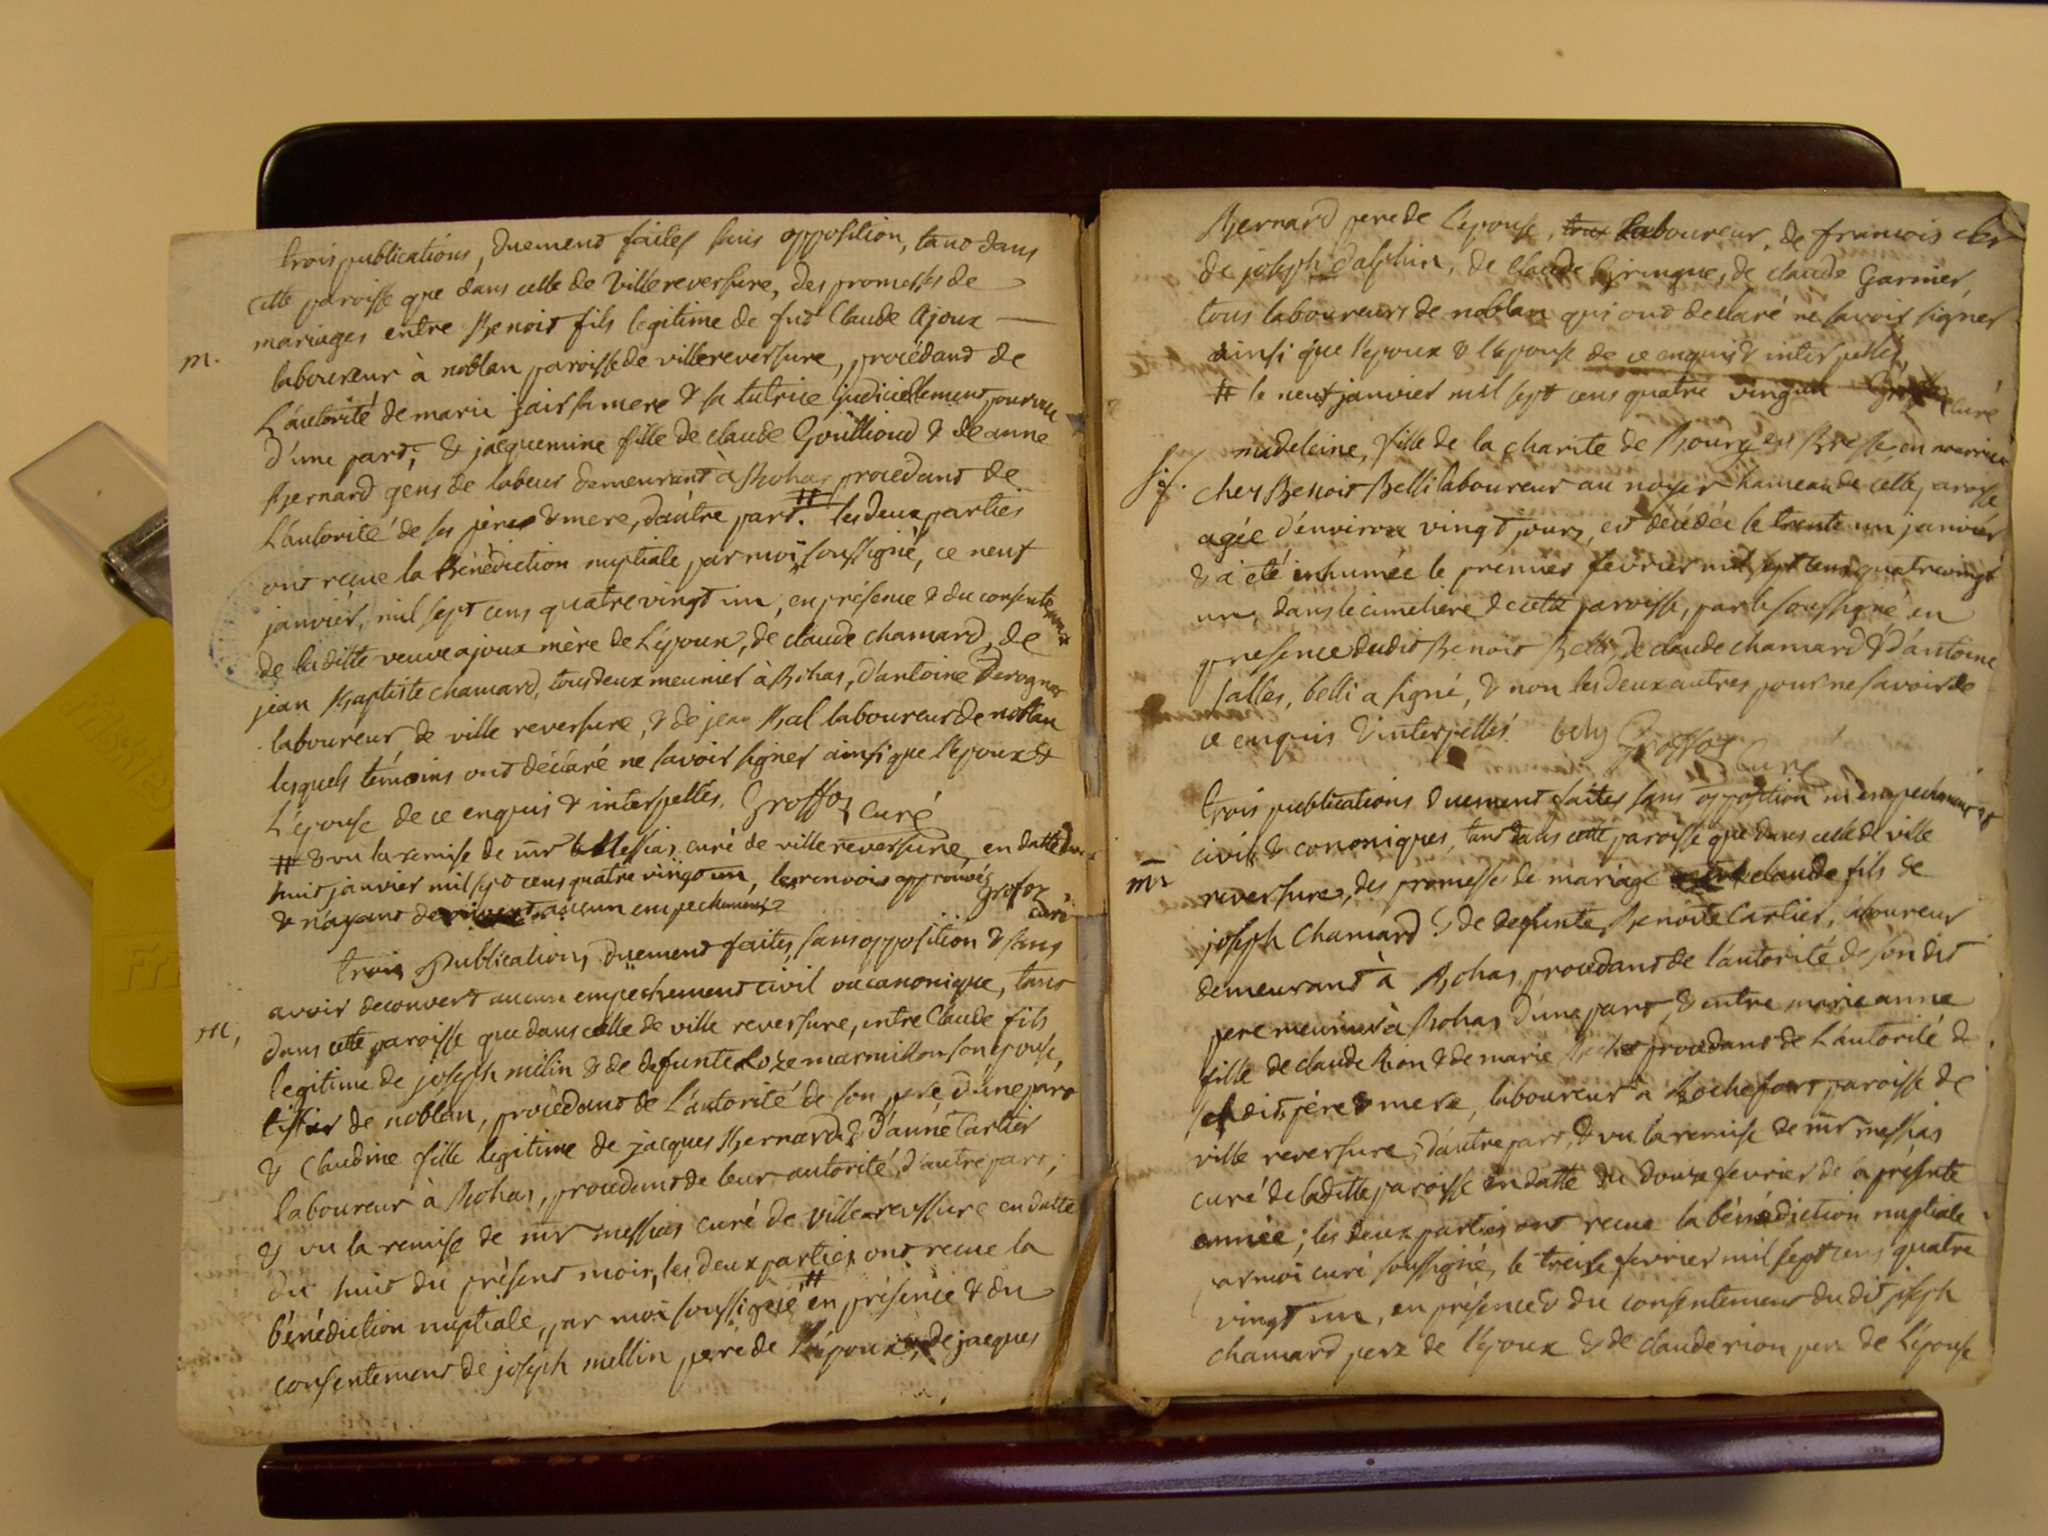 trois publications, duement faites sans opposition, tant dans
cette paroisse que dans celle de Villereversure, des promesses de
mariages entre Benoit fils legitime de fut Claude Ajoux
m. laboureur à noblan paroisse de villereversure, procédant de
L'autorité de marie jair sa mere & sa tutrice judiciellement pourvue
d'une part, & jacquemine fille de claude Gouilloud & de anne
Bernard gens de labeur demeurant à Rohas procedant de
L'autorité de ses pères & mere, d'autre part. # les deux parties
ont reçue la Bénédiction nuptiale par moi soussigné, ce neuf
janvier, mil sept cens quatre vingt un, en présence & du consentement
de laditte veuve ajoux mère de L'époux, de claude chamard, de
jean Baptiste chamard, tous deux meunier à Rohas, d'antoine
laboureur de ville reversure, & de jean Bal laboureur de noblan
lesquels témoins ont déclaré ne savoir signer ainsi que l'epoux &
L'épouse de ce enquis & interpellés. Groffoz curé
# & vu la remise de mr Messias curé de villereversure, en datte du
huit janvier mil sept cens quatre vingt un, les renvois approuvés
& n'ayant aucun empechement Grofoz curé
trois Publications, duement faites, sans opposition & sans
avoir decouvert aucun empechement civil ou canonique, tant
m, dans cette paroisse que dans celle de ville reversure, entre Claude fils
legitime de joseph milin & de defunte Roze marmillon son epouse,
tissier de noblan, procedant de L'autorité de son pere, d'une part
& Claudine fille legitime de jacques Bernard & d'anne Carlier
laboureur à Rohas, procedant de leur autorité d'autre part;
& vu la remise de mr messias curé de ville reversure en datte
du huit du présent mois, les deux parties ont recue la
bénédiction nuptiale, par moi soussigné # en présence & du
consentement de joseph mellin pere de l'époux, de jacques
Bernard pere de l'epouse, laboureur, de francois
de joseph dalphin, de claude Gringue, de claude Garnier,
tous laboureurs de noblan qui ont declaré ne savoir signer
ainsi que l'epoux & l'epouse de ce enquis & interpellés,
# le neuf janvier mil sept cens quatre vingt un curé
madeleine, fille de la charite de Bourg en Bresse, en nourrice
chez Benoit Belli laboureur au noyer hameau de cette paroisse
agée d'environ vingt jours, est décédée le trente un janvier
& a été inhumée le premier fevrier mil sept cens quatre vingt
un, dans le cimetiere de cette paroisse, par le soussigné, en
presence dudit Benoit Belli, de claude chamard & d'antoine
salles, belli a signé, & non les deux autres pour ne savoir de
ce enquis & interpellés. bely Groffoz Curé
trois publications duement faites sans opposition ni empechement
civils & canoniques, tant dans cette paroisse que dans celle de ville
m reversure, des promesses de mariage claude fils de
joseph Chamard & de defunte Benoite Carlier, laboureur
demeurant à Rohas, procedant de l'autorité de son dit
pere meunier à Rohas d'une part, & entre marie anne
fille de claude Rion & de marie procedant de L'autorité de
ses dit pére & mere, laboureur à Rochefort paroisse de
ville reversure, d'autre part, & vu la remise de mr messias
curé de laditte paroisse en datte du douze fevrier de la présente
année; les deux parties ont recue la bénédiction nuptiale
par moi curé soussigné, le treize fevrier mil sept cens quatre
vingt un, en présence & du consentement du dit joseph
chamard pere de l'epoux & de claude rion pere de L'epouse